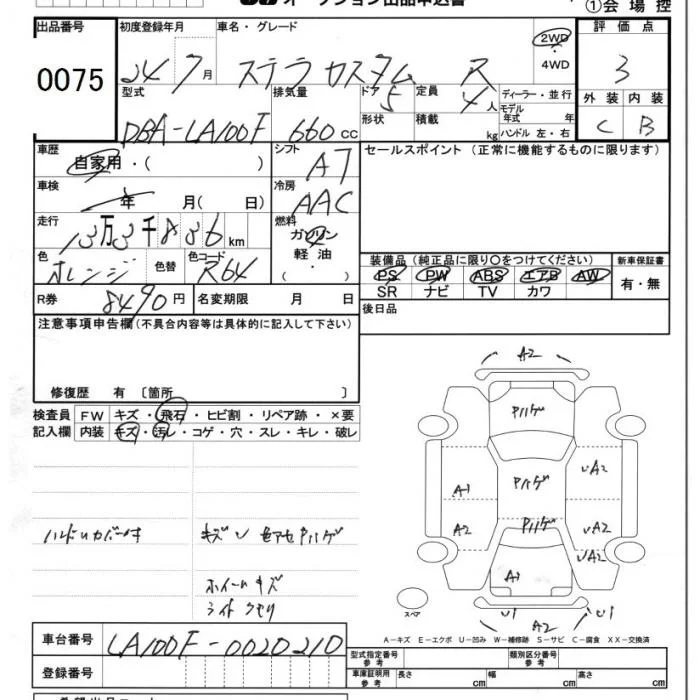 オークション出品申込書
①会場控
出品番号 初度登録年月 車名・グレード 評価点
0075 24 7月 ステラ カスタム R 2WD・4WD 3
型式 排気量 ドア 定員 ディーラー・並行 外装 内装
DBA-LA100F 660cc 5 4人 モデル年式 年 C B
形状 積載 kg ハンドル 左・右
車歴 自家用・( ) シフト AT セールスポイント (正常に機能するものに限ります)
車検 年 月( 日) 冷房 AAC
走行 13万3千836km 燃料 ガソリン
色 オレンジ 色替 色コード R64 軽油 ・( )
装備品 (純正品に限り〇をつけてください) 新車保証書
PS PW ABS エアB AW 有・無
SR ナビ TV カワ
R券 8490円 名変期限 月 日 後日品
注意事項申告欄(不具合内容等は具体的に記入して下さい)
修復歴 有 〔箇所 〕
検査員 FW キズ・飛石・ヒビ割・リペア跡・×要
記入欄 内装 キズ・汚レ・コゲ・穴・スレ・キレ・破レ
A2
アハゲ
アハゲ UA2
A1
アハゲ
A2 UA2
UA2
A1
U1 U1
ハンドルカバー付 キズ 色アセ アハゲ
ホイールキズ
ライトクモリ
スペア
A-キズ E-エクボ U-凹み W-補修跡 S-サビ C-腐食 XX-交換済
車台番号 LA100F-0020210
型式指定番号 参考 類別区分番号 参考
登録番号 車庫証明用 参考 長さ cm 幅 cm 高さ cm